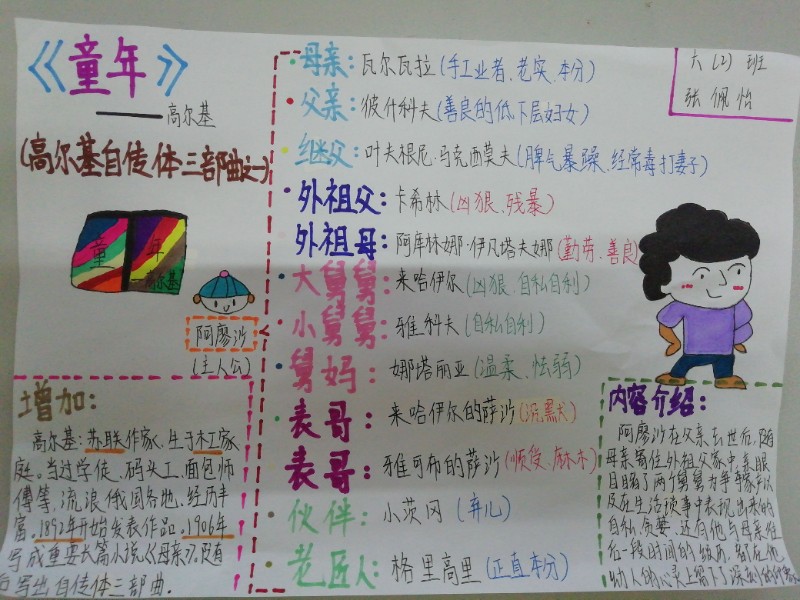 《童年》
——高尔基
(高尔基自传体三部曲之一)
童年
—高尔基
阿廖沙
(主人公)
母亲:瓦尔瓦拉(手工业者、老实、本分)
父亲:彼什科夫(善良的低下层妇女)
继父:叶夫根尼·马克西莫夫(脾气暴躁、经常毒打妻子)
外祖父:卡希林(凶狠、残暴)
外祖母:阿库林娜·伊凡塔夫娜(勤劳、善良)
大舅舅:来哈伊尔(凶狠、自私自利)
小舅舅:雅科夫(自私自利)
舅妈:娜塔丽亚(温柔、怯弱)
表哥:来哈伊尔的萨沙(沉默)
表哥:雅可布的萨沙(顺从、麻木)
伙伴:小茨冈(弃儿)
老匠人:格里高里(正直本分)
六(2)班
张佩怡
增加:
高尔基:苏联作家,生于木工家
庭。当过学徒、码头工、面包师
傅等,流浪俄国各地,经历丰
富。1892年开始发表作品,1906年
写成重要长篇小说《母亲》,还有
自写出自传体三部曲.
内容介绍:
阿廖沙在父亲去世后,随
母亲寄住外祖父家中,亲眼
目睹了两个舅舅为争家产以
及在生活琐事中表现出来的
自私、贪婪,还有他与母亲继
后一段时间的,都在他
幼小的心灵上留下了深刻的